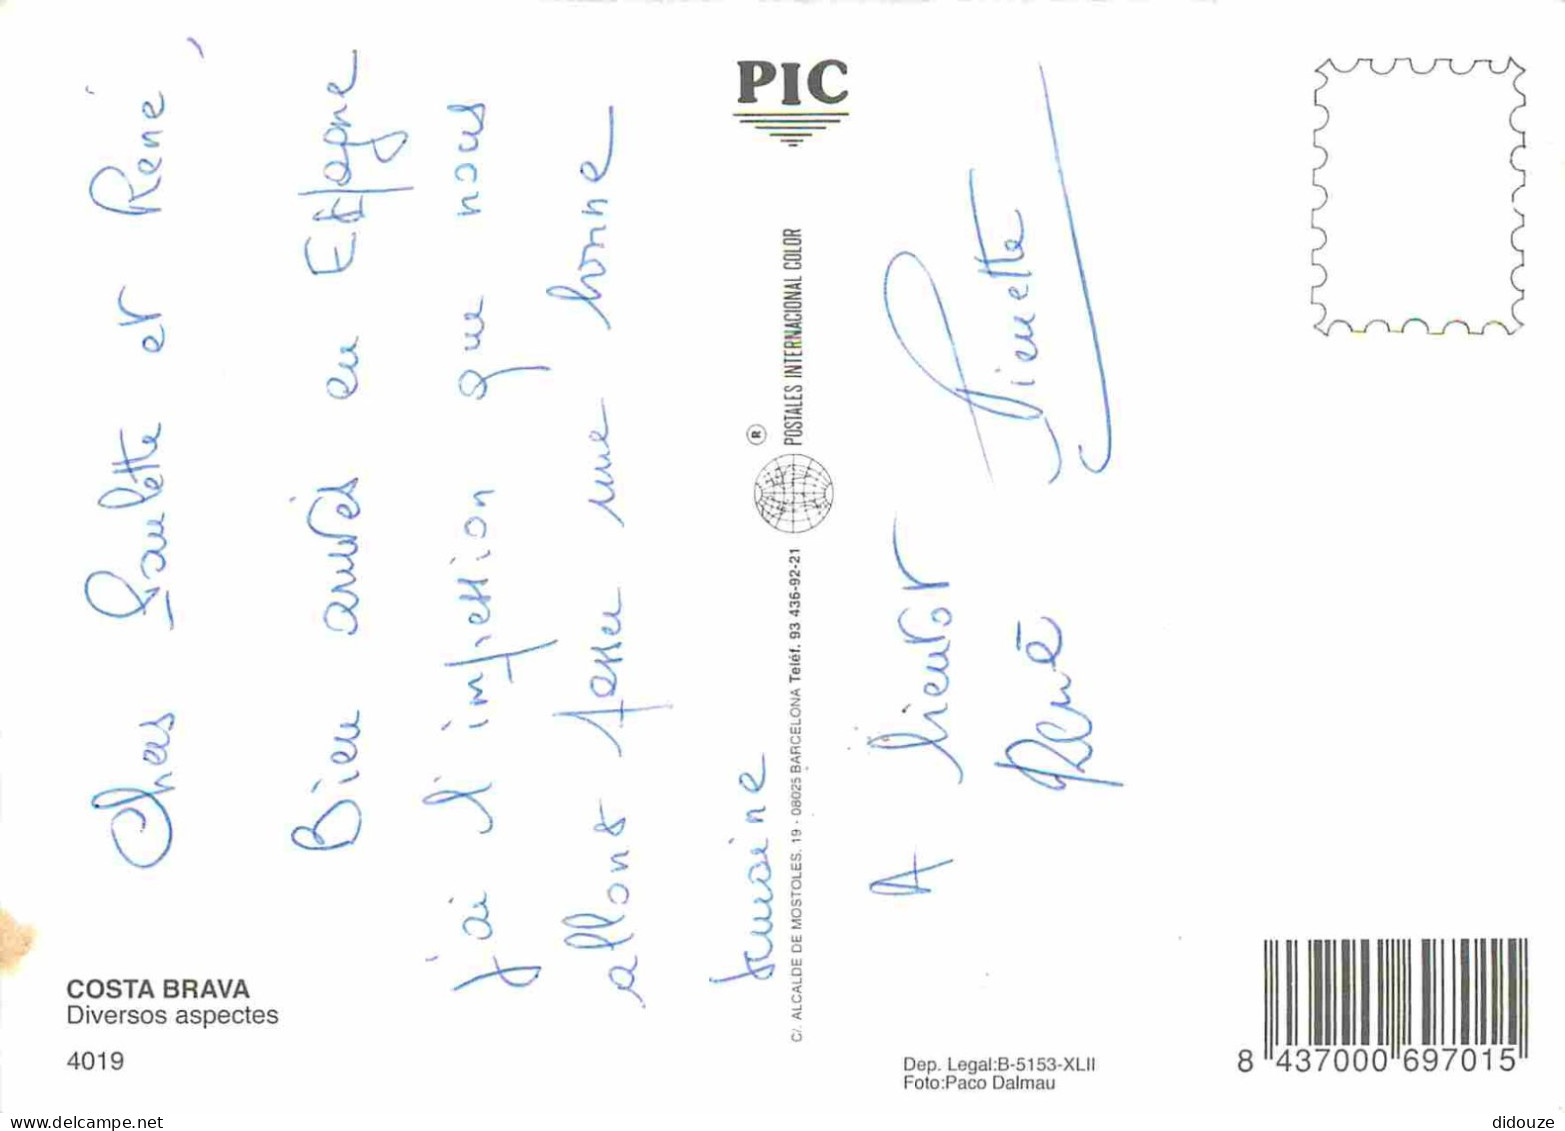 Chers Paulette et René,
Bien arrivés en Espagne
j'ai l'impression que nous
allons passer une bonne
semaine
A bientot Pierrette
René
PIC
POSTALES INTERNACIONAL COLOR
®
C/. ALCALDE DE MOSTOLES, 19 - 08025 BARCELONA Teléf. 93 436-92-21
COSTA BRAVA
Diversos aspectes
4019
Dep. Legal:B-5153-XLII
Foto:Paco Dalmau
8 437000 697015
delcampe.net
didouze